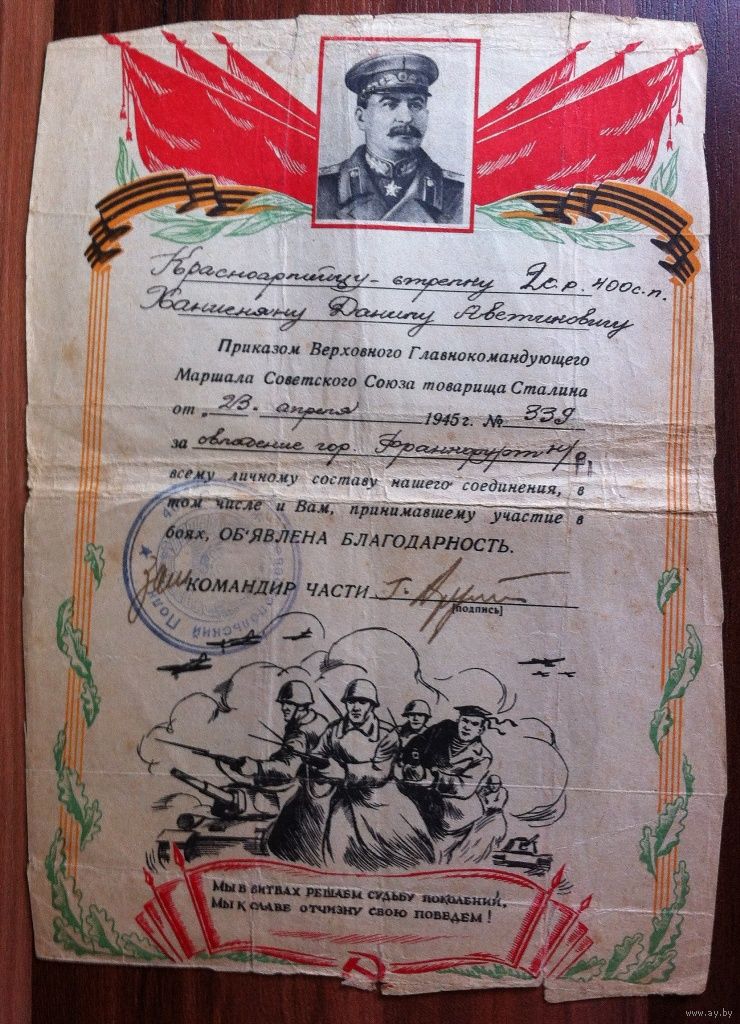 Красноармейцу-стрелку 2с.р. 400с.п.
Данилу Аветиковичу
Приказом Верховного Главнокомандующего
Маршала Советского Союза товарища Сталина
от „23. апреля 1945 г. № 339
за овладение гор. Франкфурт н/О
всему личному составу нашего соединения, в
том числе и Вам, принимавшему участие в
боях, ОБ'ЯВЛЕНА БЛАГОДАРНОСТЬ.
КОМАНДИР ЧАСТИ
[подпись]
МЫ В БИТВАХ РЕШАЕМ СУДЬБУ ПОКОЛЕНИЙ,
МЫ К СЛАВЕ ОТЧИЗНУ СВОЮ ПОВЕДЕМ!
www.ay.by